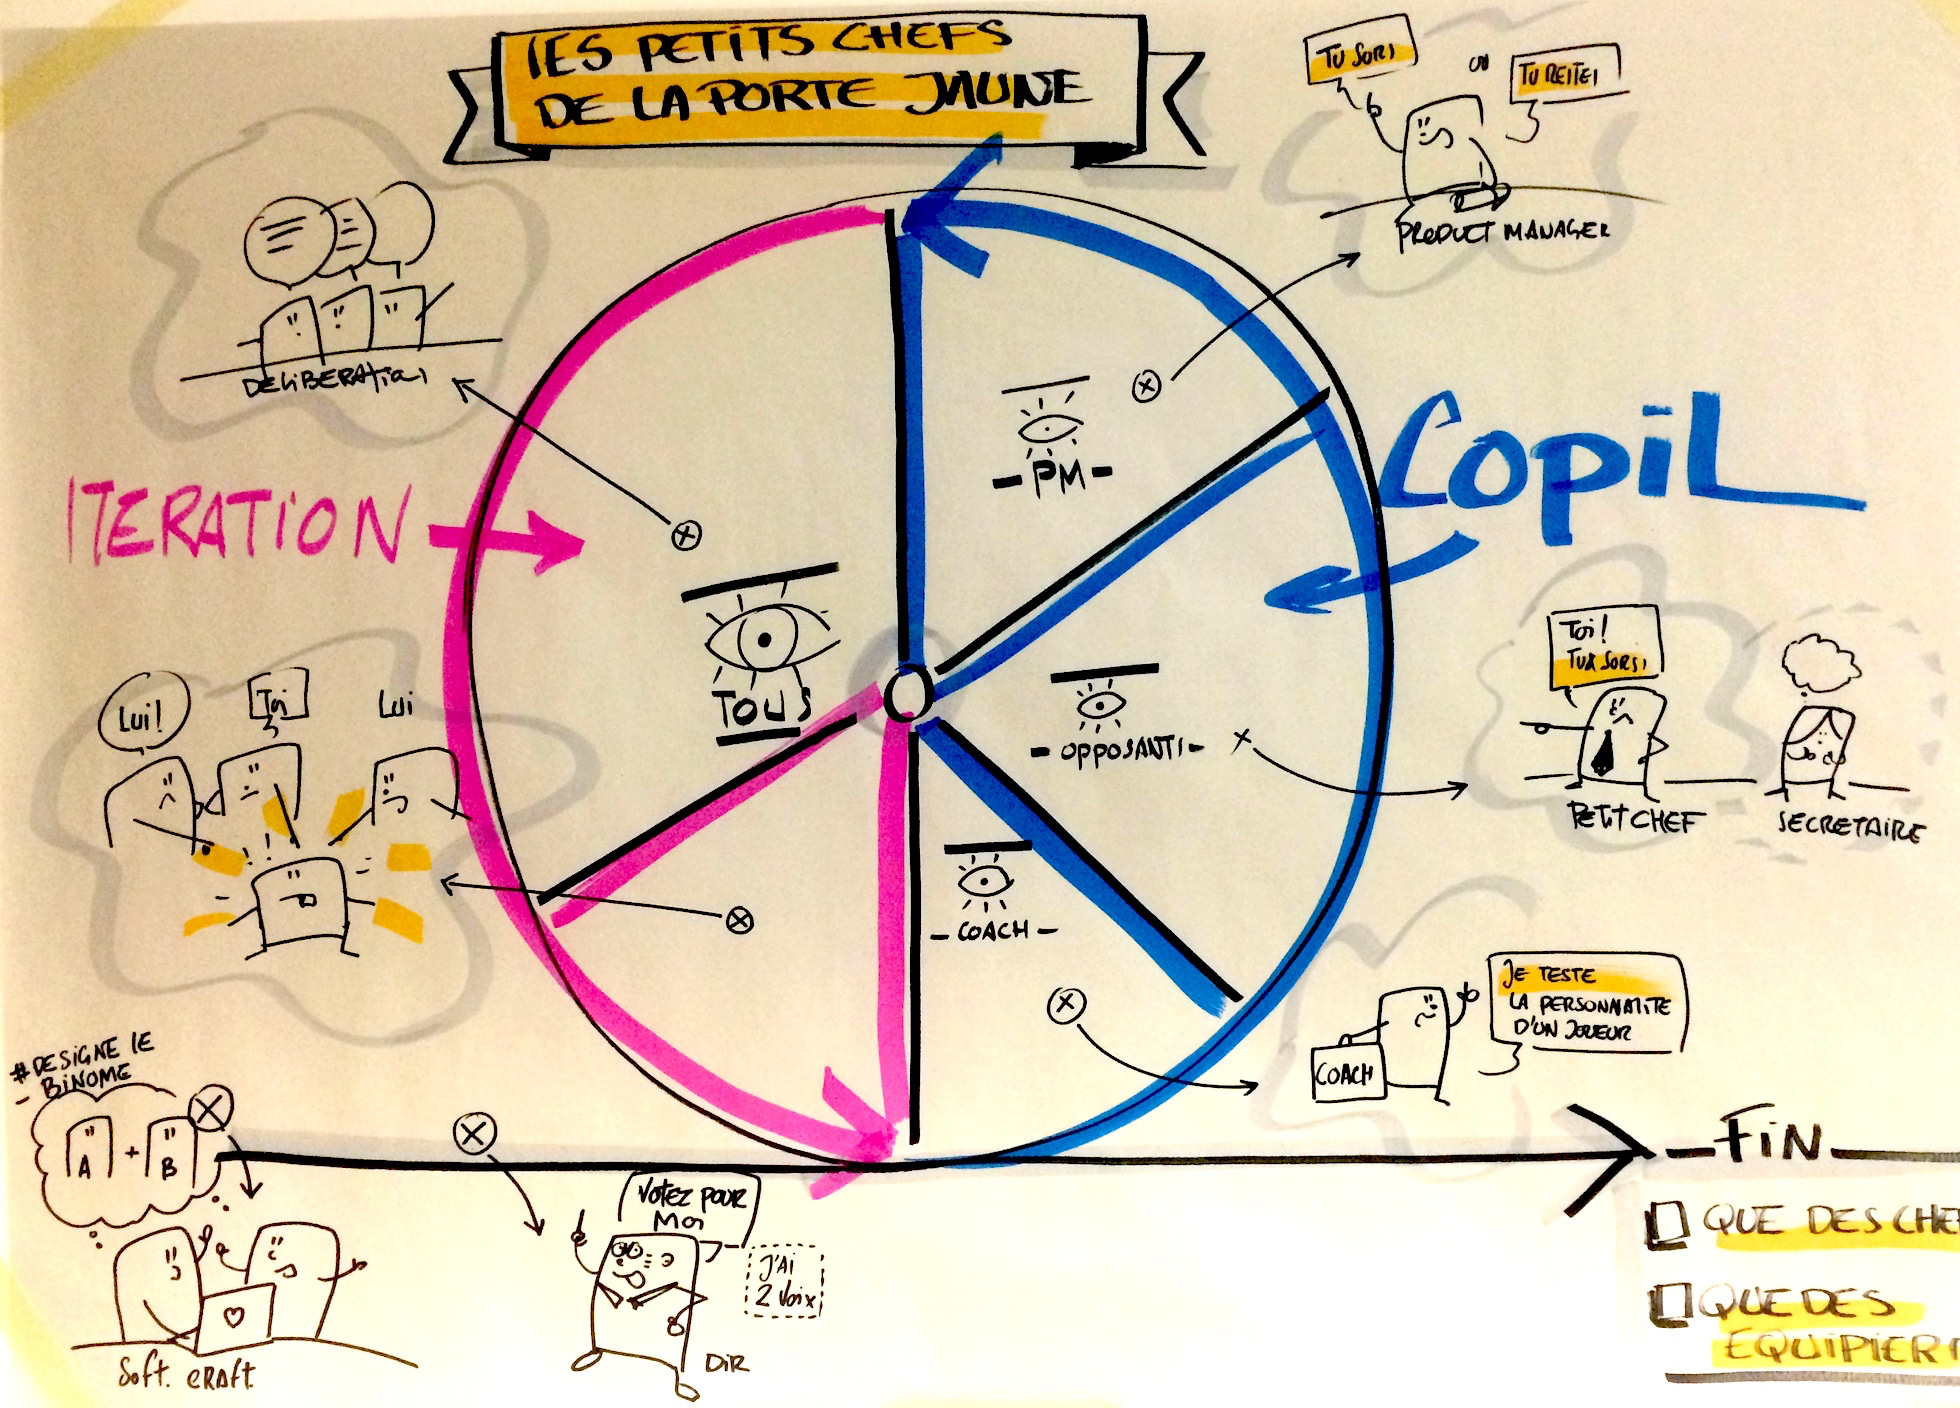 LES PETITS CHEFS
DE LA PORTE JAUNE
TU SORS
OU
TU RESTES
PRODUCT MANAGER
DELIBERATION
ITERATION
COPIL
- PM -
TOUS
- OPPOSANTS -
- COACH -
Toi!
TU SORS!
PETIT CHEF
SECRETAIRE
Lui!
Toi
Lui
JE TESTE
LA PERSONNALITE
D'UN JOUEUR
COACH
# DESIGNE LE
- BINOME
A + B
Soft. CRAft
VOTEZ POUR
Moi
J'AI
2 Voix
DIR
FIN
QUE DES CHE
QUE DES
EQUIPIER